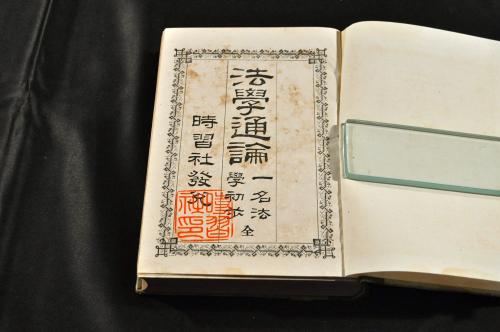 法學通論
一名法
學初步
全
時習社發兌